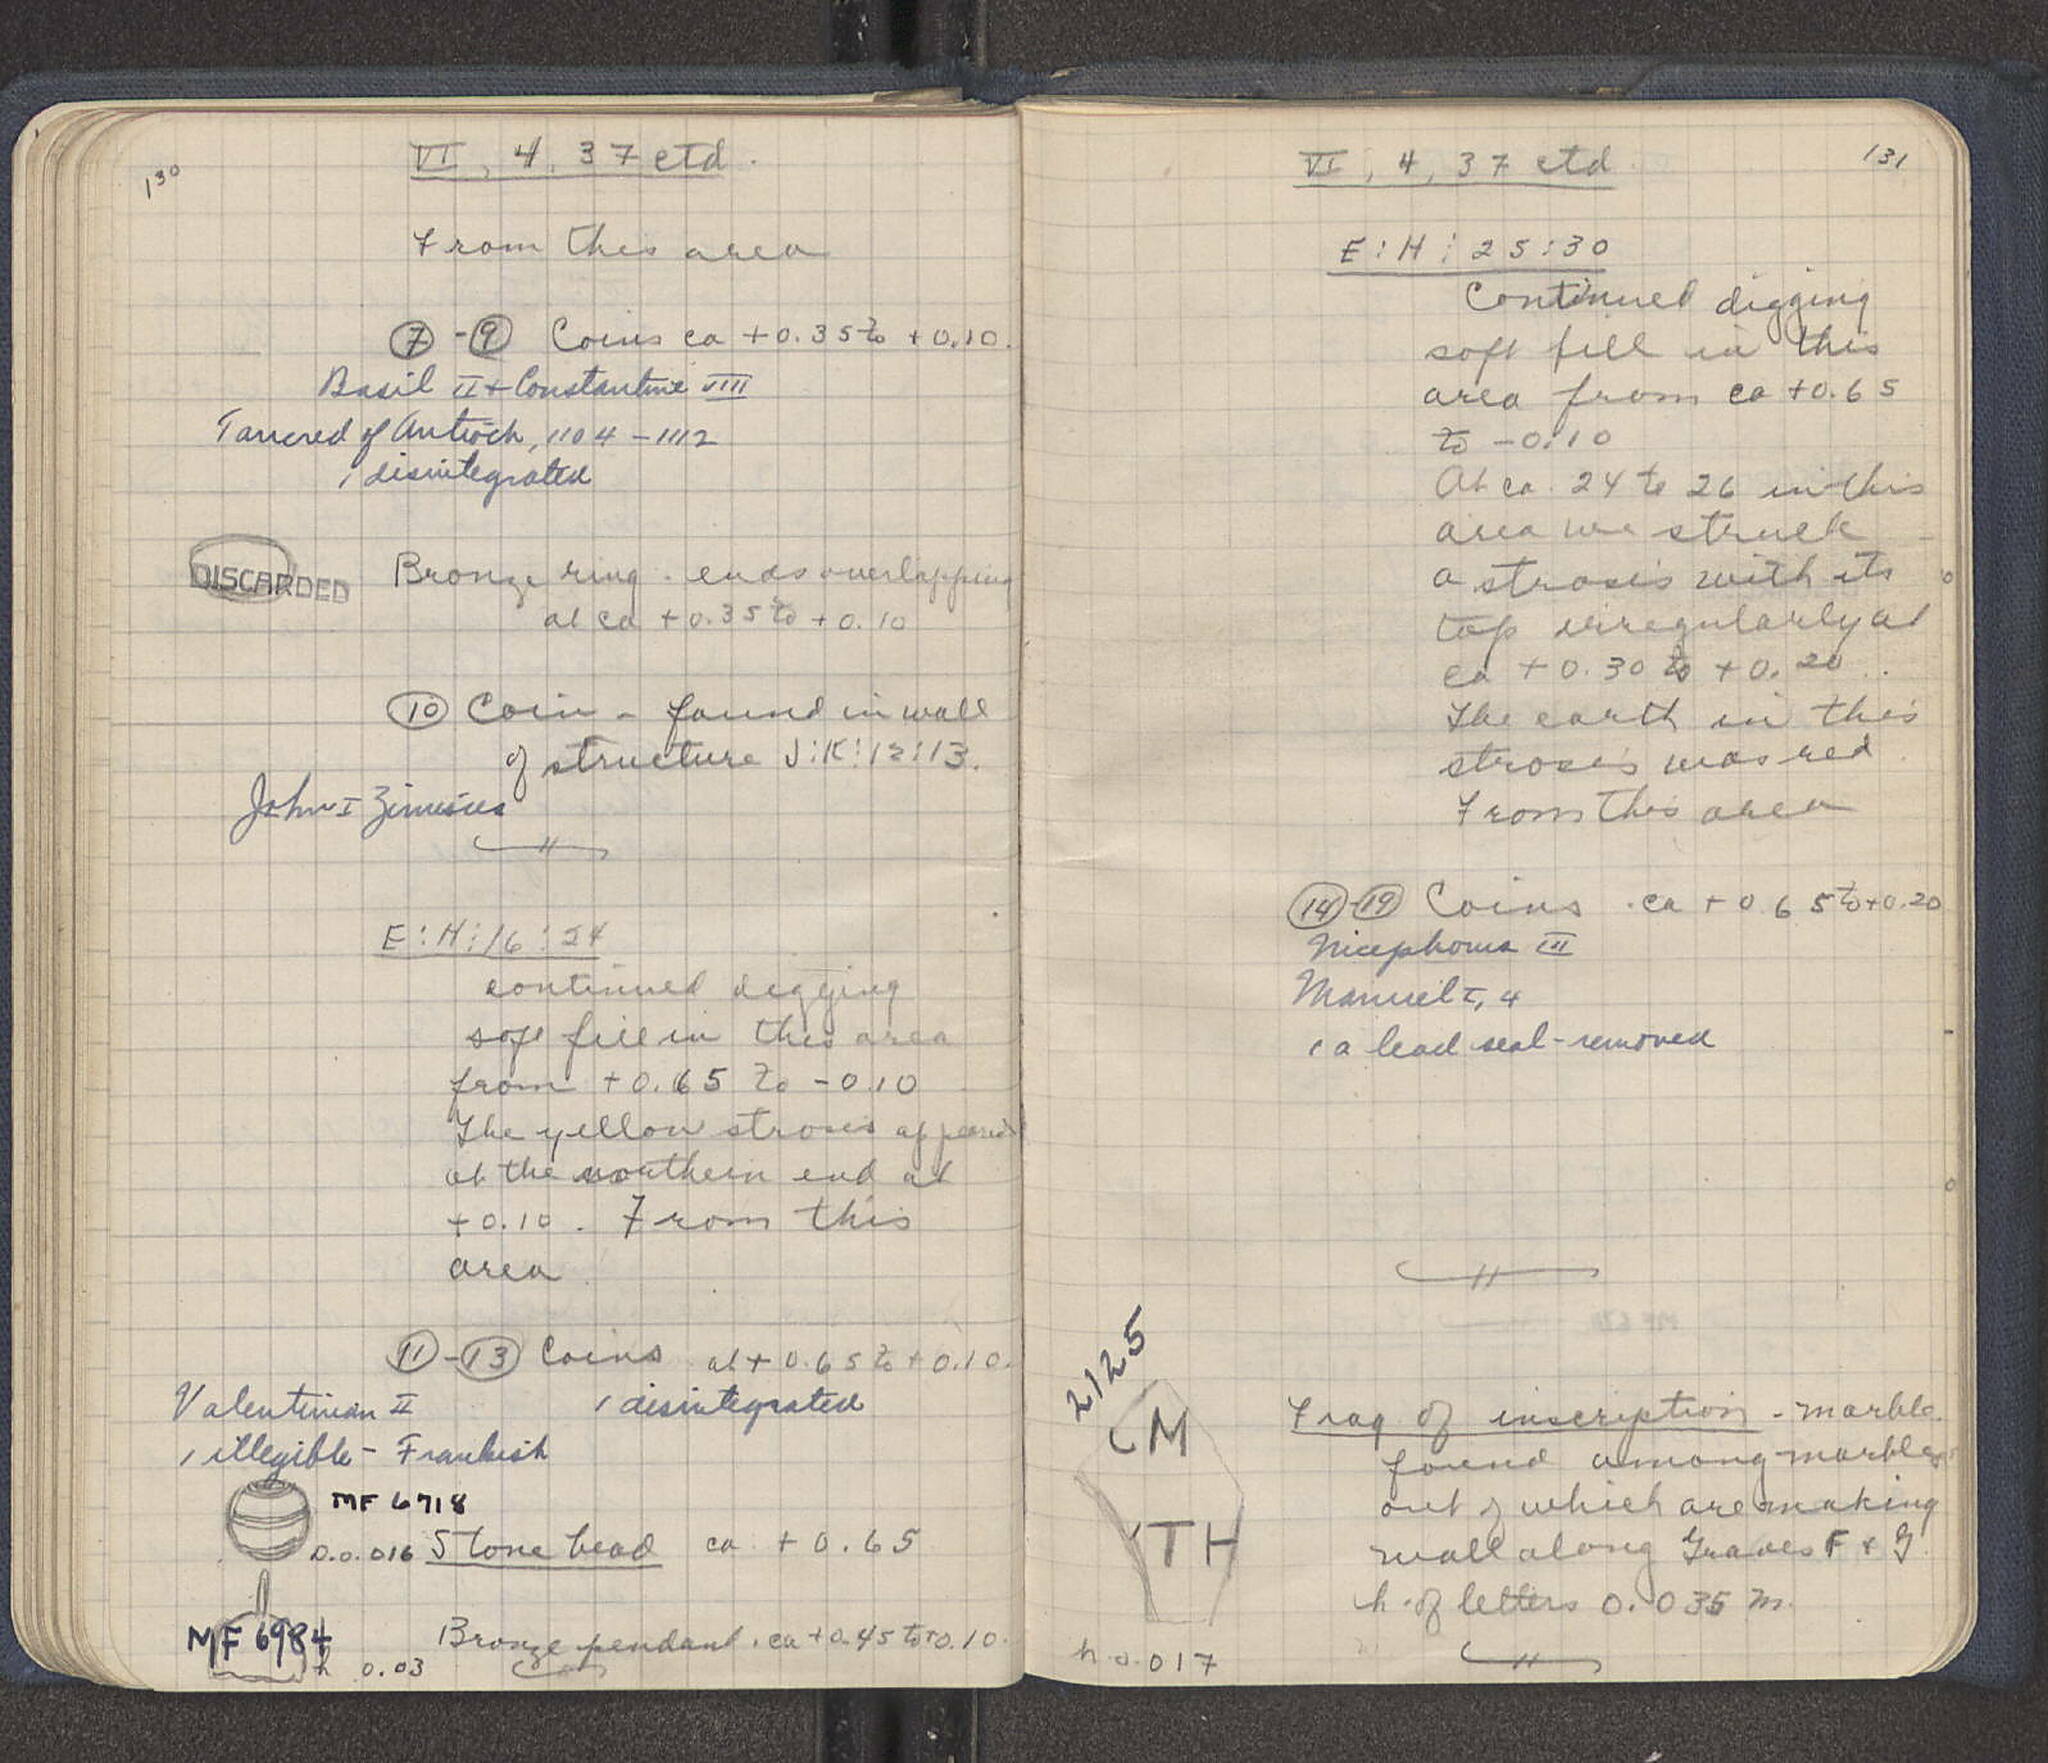 130
VI, 4, 37 ctd.
From this area
7 - 9 Coins ca +0.35 to +0.10.
Basil II + Constantine VIII
Tancred of Antioch, 1104-1112
1 disintegrated
DISCARDED
Bronze ring. ends overlapping
at ca +0.35 to +0.10
10 Coin - found in wall
of structure J:K:12:13.
John I Zimisces
E:H:16:24
continued digging
soft fill in this area
from +0.65 to -0.10
The yellow strosis appeared
at the northern end at
+0.10. From this
area
11 - 13 Coins at +0.65 to +0.10.
Valentinian II 1 disintegrated
1 illegible - Frankish
MF 6718
D. 0.016 Stone bead ca +0.65
MF 6984
h 0.03 Bronze pendant. ca +0.45 to +0.10.
131
VI, 4, 37 ctd
E:H:25:30
Continued digging
soft fill in this
area from ca +0.65
to -0.10
At ca. 24 to 26 in this
area we struck
a strosis with its
top irregularly at
ca +0.30 to +0.20.
The earth in this
strosis was red
From this area
14 - 19 Coins. ca +0.65 to +0.20
Nicephorus III
Manuel I, 4
1 a lead seal - removed
2125
M
TH
h 0.017
Frag of inscription - marble.
found among marbles
out of which are making
wall along Graves F + G
h. of letters 0.035 m.